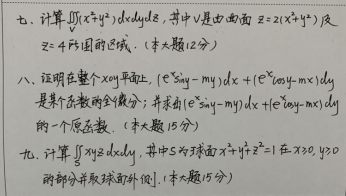 七、计算∭(x²+y²)dxdydz,其中V是由曲面 z=2(x²+y²)及
V
z=4所围的区域.(本大题12分)
八、证明在整个xoy平面上,(eˣsiny-my)dx+(eˣcosy-mx)dy
是某个函数的全微分;并求出(eˣsiny-my)dx+(eˣcosy-mx)dy
的一个原函数.(本大题15分)
九、计算∬xyzdxdy,其中S为球面x²+y²+z²=1在x≥0,y≥0
S
的部分并取球面外侧.(本大题15分)